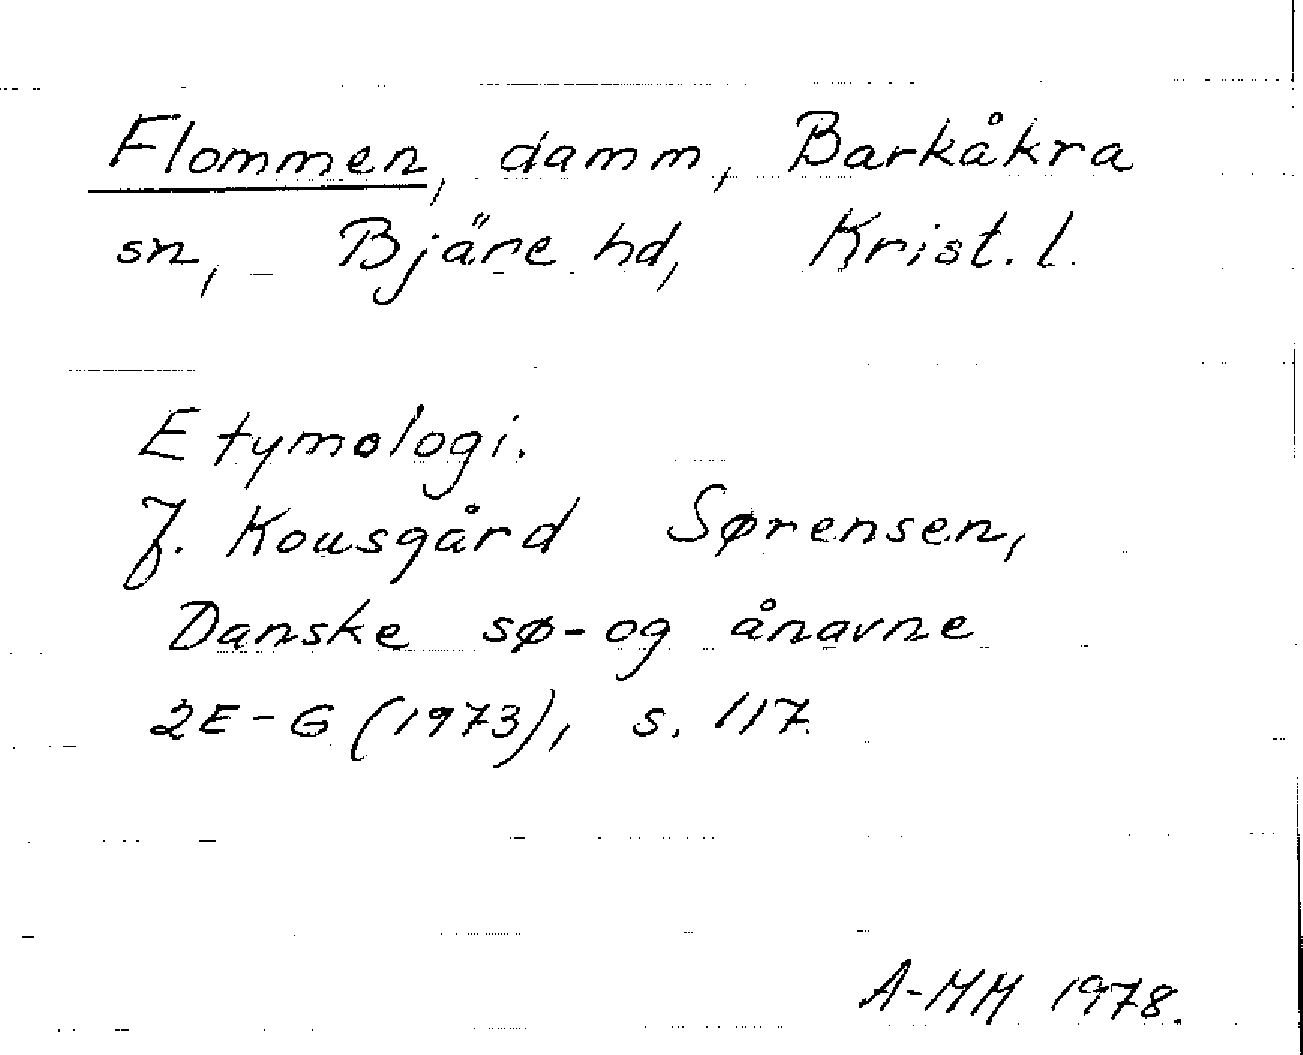 Flommen, damm, Barkåkra
sn, Bjäre hd, Krist. l.
Etymologi.
J. Kousgård Sørensen,
Danske sø- og ånavne
2E-G (1973), s. 117.
A-MM 1978.